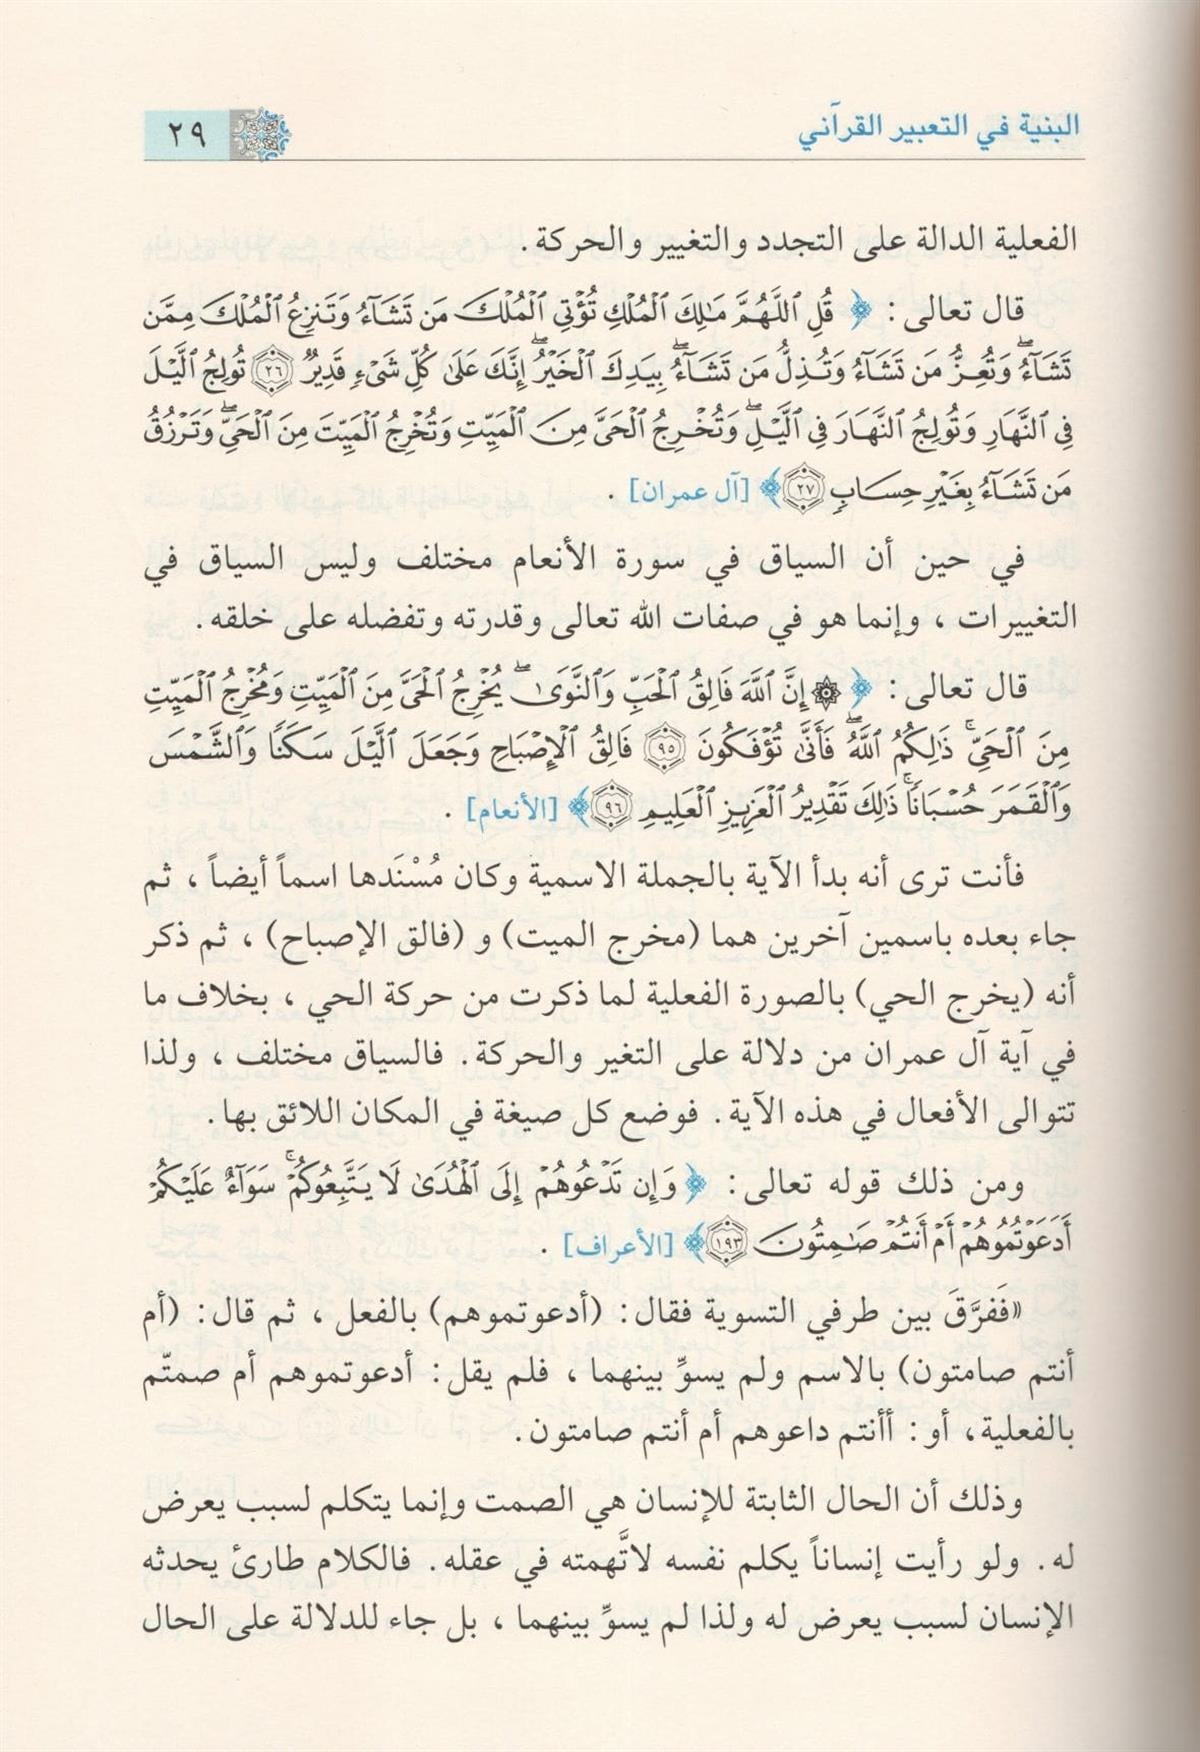 البنية في التعبير القرآني
٢٩
الفعلية الدالة على التجدد والتغيير والحركة .
قال تعالى : ﴿ قُلِ ٱللَّهُمَّ مَٰلِكَ ٱلْمُلْكِ تُؤْتِى ٱلْمُلْكَ مَن تَشَآءُ وَتَنزِعُ ٱلْمُلْكَ مِمَّن
تَشَآءُ وَتُعِزُّ مَن تَشَآءُ وَتُذِلُّ مَن تَشَآءُ ۖ بِيَدِكَ ٱلْخَيْرُ ۖ إِنَّكَ عَلَىٰ كُلِّ شَىْءٍ قَدِيرٌ ﴿٢٦﴾ تُولِجُ ٱلَّيْلَ
فِى ٱلنَّهَارِ وَتُولِجُ ٱلنَّهَارَ فِى ٱلَّيْلِ ۖ وَتُخْرِجُ ٱلْحَىَّ مِنَ ٱلْمَيِّتِ وَتُخْرِجُ ٱلْمَيِّتَ مِنَ ٱلْحَىِّ ۖ وَتَرْزُقُ
مَن تَشَآءُ بِغَيْرِ حِسَابٍ ﴿٢٧﴾ ﴾ [آل عمران] .
في حين أن السياق في سورة الأنعام مختلف وليس السياق في
التغييرات ، وإنما هو في صفات الله تعالى وقدرته وتفضله على خلقه .
قال تعالى : ﴿ ۞ إِنَّ ٱللَّهَ فَالِقُ ٱلْحَبِّ وَٱلنَّوَىٰ ۖ يُخْرِجُ ٱلْحَىَّ مِنَ ٱلْمَيِّتِ وَمُخْرِجُ ٱلْمَيِّتِ
مِنَ ٱلْحَىِّ ۚ ذَٰلِكُمُ ٱللَّهُ ۖ فَأَنَّىٰ تُؤْفَكُونَ ﴿٩٥﴾ فَالِقُ ٱلْإِصْبَاحِ وَجَعَلَ ٱلَّيْلَ سَكَنًا وَٱلشَّمْسَ
وَٱلْقَمَرَ حُسْبَانًا ۚ ذَٰلِكَ تَقْدِيرُ ٱلْعَزِيزِ ٱلْعَلِيمِ ﴿٩٦﴾ ﴾ [الأنعام] .
فأنت ترى أنه بدأ الآية بالجملة الاسمية وكان مُسْنَدها اسماً أيضاً ، ثم
جاء بعده باسمين آخرين هما (مخرج الميت) و (فالق الإصباح) ، ثم ذكر
أنه (يخرج الحي) بالصورة الفعلية لما ذكرت من حركة الحي ، بخلاف ما
في آية آل عمران من دلالة على التغير والحركة . فالسياق مختلف ، ولذا
تتوالى الأفعال في هذه الآية . فوضع كل صيغة في المكان اللائق بها .
ومن ذلك قوله تعالى : ﴿ وَإِن تَدْعُوهُمْ إِلَى ٱلْهُدَىٰ لَا يَتَّبِعُوكُمْ ۚ سَوَآءٌ عَلَيْكُمْ
أَدَعَوْتُمُوهُمْ أَمْ أَنتُمْ صَٰمِتُونَ ﴿١٩٣﴾ ﴾ [الأعراف] .
«ففرَّقَ بين طرفي التسوية فقال : (أدعوتموهم) بالفعل ، ثم قال : (أم
أنتم صامتون) بالاسم ولم يسوِّ بينهما ، فلم يقل : أدعوتموهم أم صمتّم
بالفعلية، أو : أأنتم داعوهم أم أنتم صامتون .
وذلك أن الحال الثابتة للإنسان هي الصمت وإنما يتكلم لسبب يعرض
له . ولو رأيت إنساناً يكلم نفسه لاتَّهمته في عقله . فالكلام طارئ يحدثه
الإنسان لسبب يعرض له ولذا لم يسوِّ بينهما ، بل جاء للدلالة على الحال